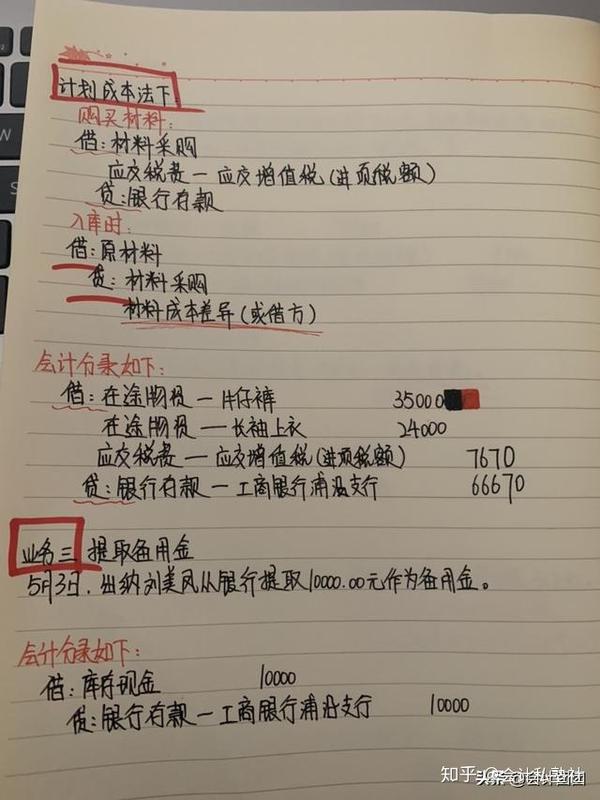 计划成本法下:
购买材料:
借:材料采购
应交税费—应交增值税(进项税额)
贷:银行存款
入库时:
借:原材料
贷:材料采购
材料成本差异(或借方)
会计分录如下:
借:在途物资—牛仔裤 35000
在途物资—长袖上衣 24000
应交税费—应交增值税(进项税额) 7670
贷:银行存款—工商银行浦沿支行 66670
业务三 提取备用金
5月3日,出纳刘美凤从银行提取10000.00元作为备用金。
会计分录如下:
借:库存现金 10000
贷:银行存款—工商银行浦沿支行 10000
知乎 @会计私塾社
头条 @会计